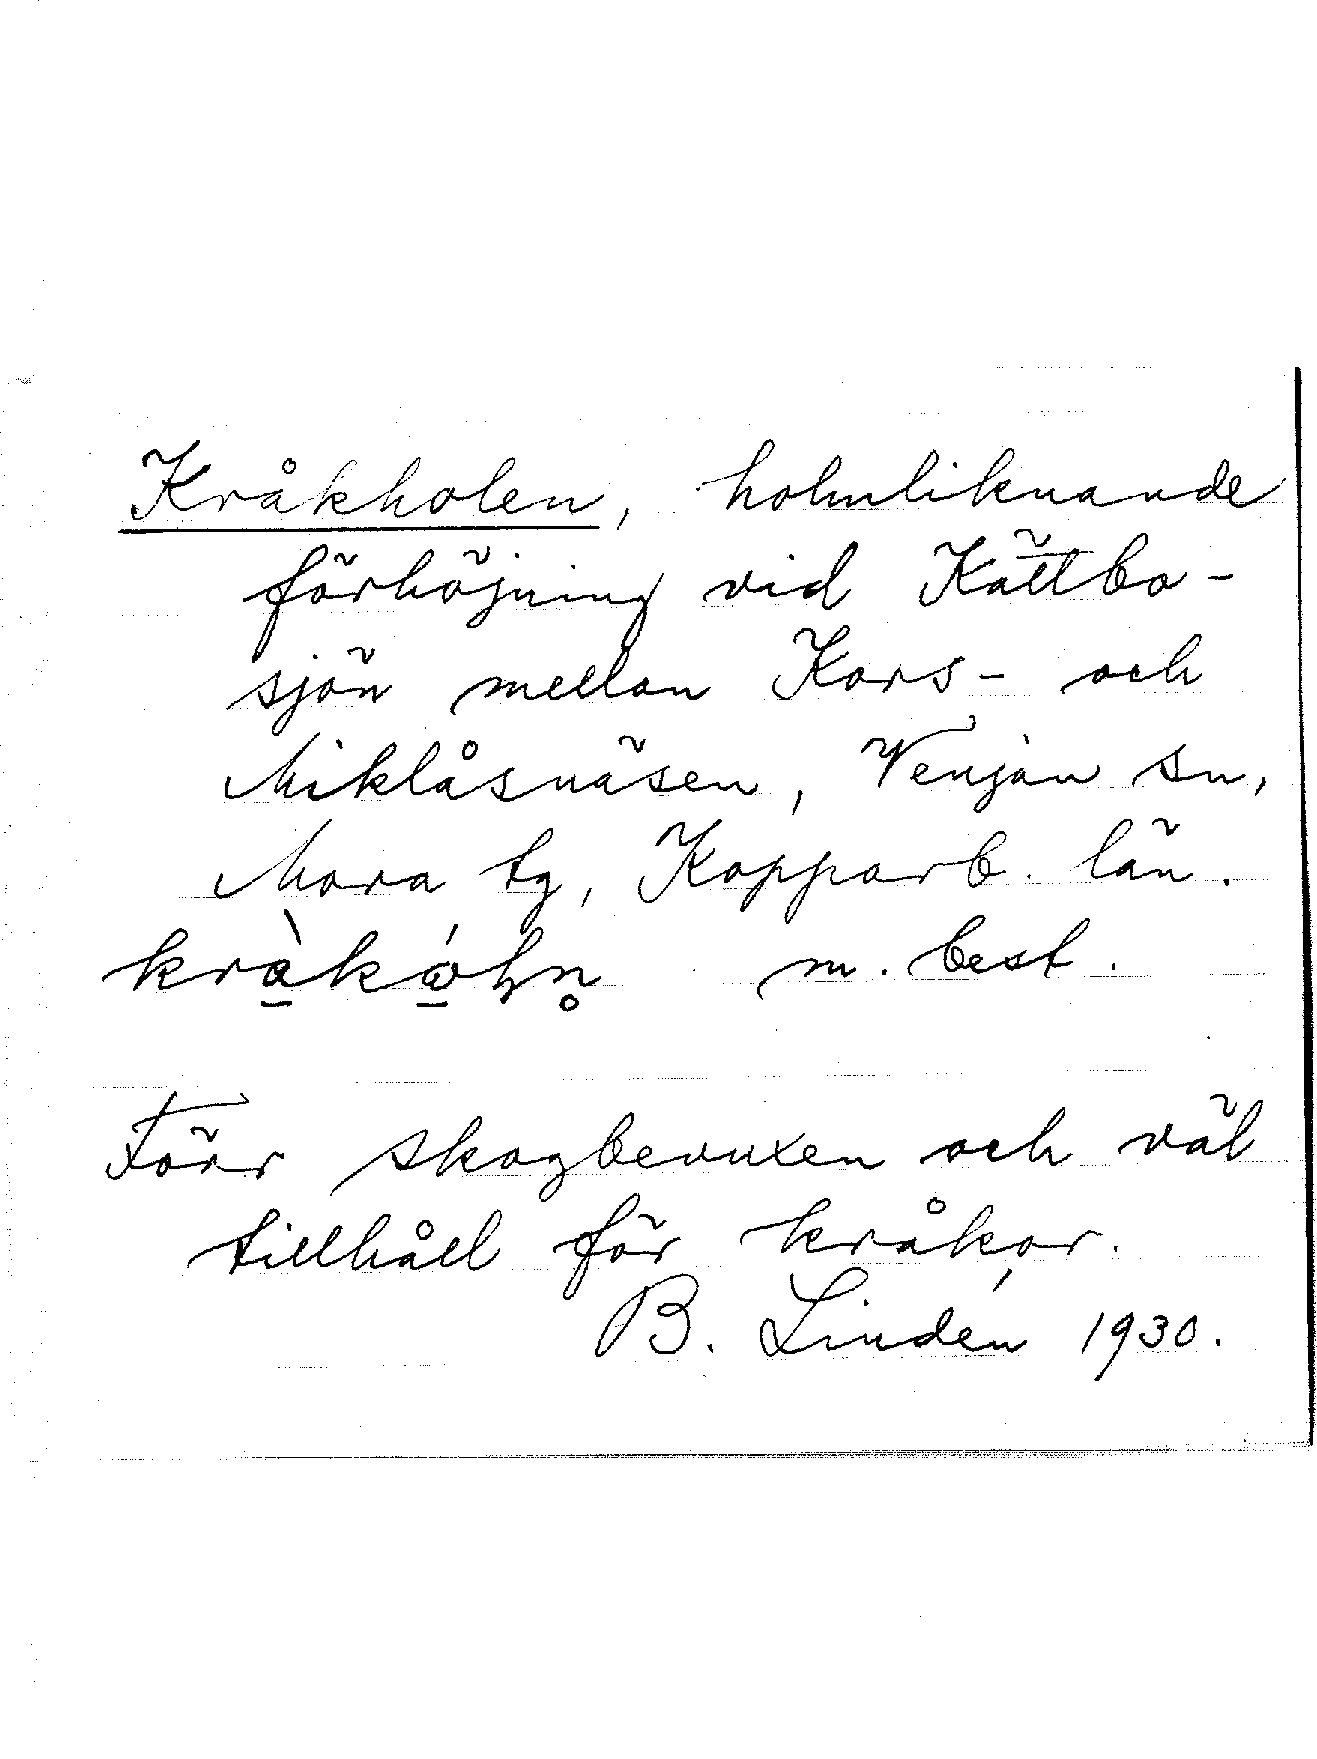 Kråkholen, holmliknande
förhöjning vid Kättbo-
sjön mellan Kors- och
Miklåsnäsen, Venjan sn,
Mora tg, Kopparb. län.
m. best.
Förr skogbevuxen och väl
tillhåll för kråkor.
B. Lindén 1930.